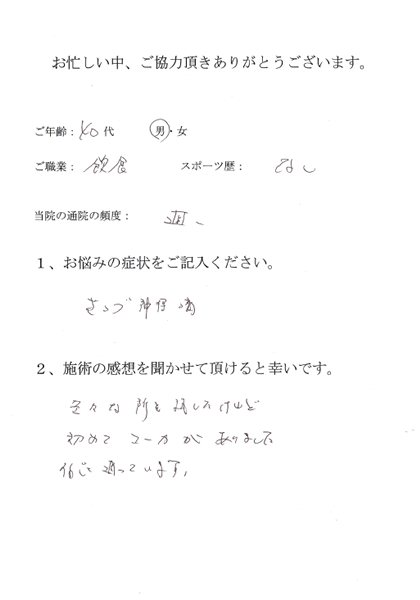 お忙しい中、ご協力頂きありがとうございます。
ご年齢：40代　男・女
ご職業：飲食　スポーツ歴：なし
当院の通院の頻度：週一
１、お悩みの症状をご記入ください。
ざこつ神経痛
２、施術の感想を聞かせて頂けると幸いです。
色々な所を試したけど
初めてコーカがありまして
通っています。